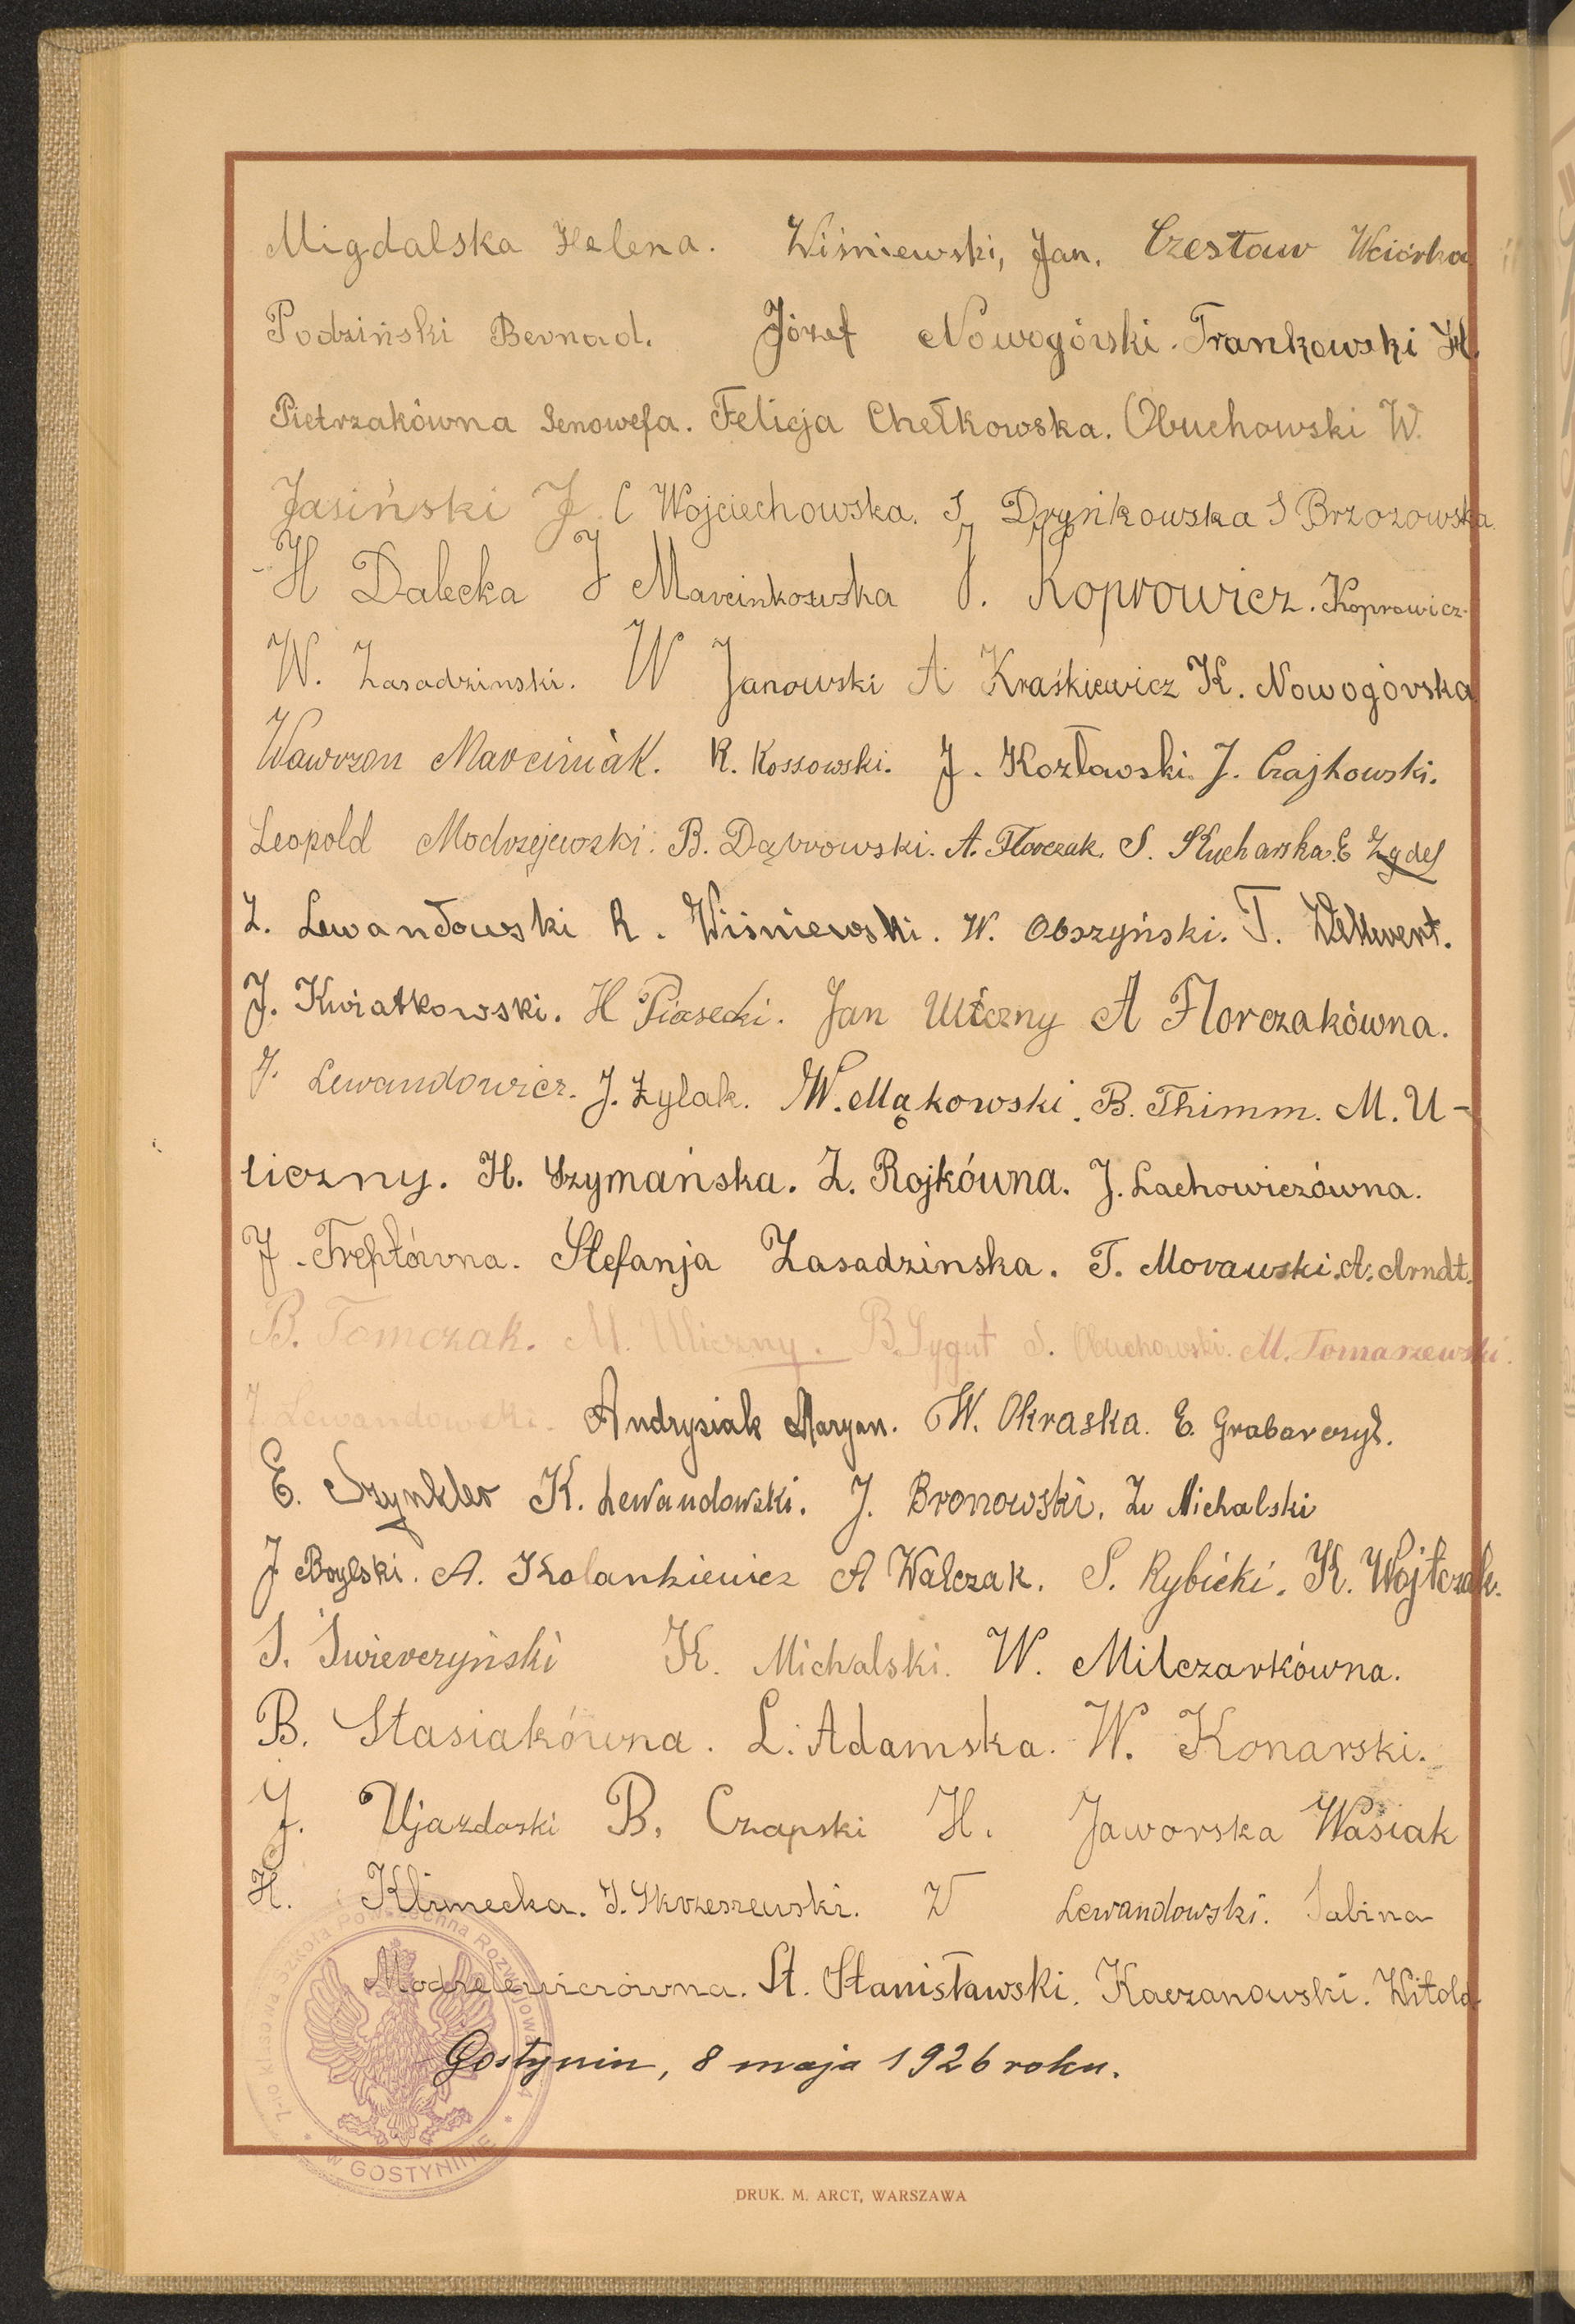 Migdalska Helena. Wiśniewski, Jan. Czesław Wciórka
Podziński Bernad. Józef Nowogórski. Frankowski H.
Pietrzakówna Genowefa. Felicja Chełkowska. Obuchowski W.
Jasiński J. C Wojciechowska. S Drynkowska S Brzozowska.
H Dalecka J Marcinkowska J. Koprowicz. Koprowicz.
W. Zasadzinski. W Janowski A Kraśkiewicz K. Nowogórska
Wawrzon Marciniak. R. Kossowski. J. Kozławski. J. Czajkowski.
Leopold Modrzejewski. B. Dąbrowski. A. Florczak. S. Kucharska. E Zydel
Z. Lewandowski R. Wiśniewski. W. Obszyński. T.
J. Kwiatkowski. H Piasecki. Jan A Florczakówna.
J. Lewandowicz. J. Żylak. W. Mąkowski. B. Thimm. M. U-
liczny. H. Szymańska. Z. Rojkówna. J. Lachowiczówna.
J. Treptówna. Stefanja Zasadzinska. T. Morawski. A. Arndt.
B. Tomczak. M. Uliczny. B. Sygut S. Obuchowski. M. Tomaszewski.
J. Lewandowski. Andrysiak Maryan. W. Okraska. E. Grabarczyk.
E. Szynkler K. Lewandowski. J. Bronowski. Z. Michalski
J A. Kolankiewicz A Walczak. S. Rybicki. K. Wojtczak.
S. Świerczyński K. Michalski. W. Milczarkówna.
B. Stasiakówna. L. Adamska. W. Konarski.
J. Ujazdoski B. Czapski H. Jaworska Wasiak
H. Klimecka. J. Skrzeszewski. W Lewandowski. Sabina
Modzelewiczówna. St. Stanisławski. Kaczanowski. Witold
Gostynin, 8 maja 1926 roku.
7-io klasowa Szkoła Powszechna Rozwojowa
w GOSTYNINIE
DRUK. M. ARCT, WARSZAWA